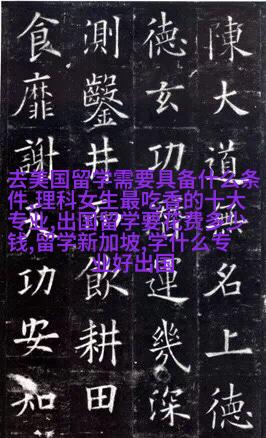 陳大道無名上德
德玄功運幾深
測鑿井飲耕田
食靡謝功安知
去美国留学需要具备什么条
件,理科女生最吃香的十大
专业,出国留学要花费多少
钱,留学新加坡,学什么专
业好出国